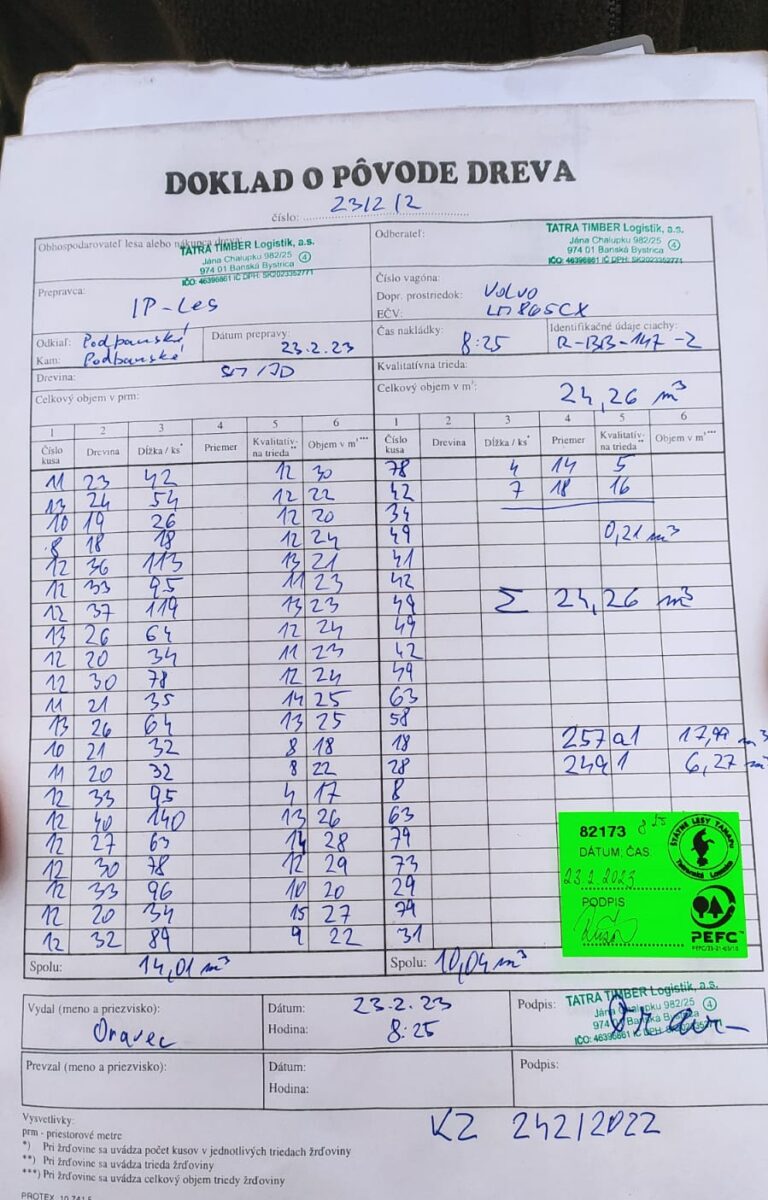 DOKLAD O PÔVODE DREVA
číslo: 23/2/2
Obhospodarovateľ lesa alebo nákupca dreva:
TATRA TIMBER Logistik, a.s.
Jána Chalupku 982/25
974 01 Banská Bystrica 4
IČO: 46396861 IČ DPH: SK2023352771
Odberateľ:
TATRA TIMBER Logistik, a.s.
Jána Chalupku 982/25
974 01 Banská Bystrica 4
IČO: 46396861 IČ DPH: SK2023352771
Prepravca:
IP-Les
Číslo vagóna:
Dopr. prostriedok: Volvo
EČV: LM865CX
Odkiaľ: Podbanské
Kam: Podbanské
Dátum prepravy:
23.2.23
Čas nakládky:
8:25
Identifikačné údaje ciachy:
R-BB-147-2
Drevina: SM/JD
Kvalitatívna trieda:
Celkový objem v prm:
Celkový objem v m³:
24,26 m³
1 2 3 4 5 6 1 2 3 4 5 6
Číslo kusa Drevina Dĺžka / ks* Priemer Kvalitatív-na trieda** Objem v m³*** Číslo kusa Drevina Dĺžka / ks* Priemer Kvalitatív-na trieda** Objem v m³***
11 23 42 12 30 78 4 14 5
13 24 54 12 22 42 7 18 16
10 19 26 12 20 34
8 18 18 12 24 49 0,21 m³
12 36 113 13 21 41
12 33 95 11 23 42
12 37 119 13 23 49 Σ 24,26 m³
13 26 64 12 24 49
12 20 34 11 23 42
12 30 78 12 24 49
11 21 35 14 25 63
13 26 64 13 25 58
10 21 32 8 18 18 257a1 17,99 m³
11 20 32 8 22 28 249 1 6,27 m³
12 33 95 4 17 8
12 40 140 13 26 63
12 27 63 14 28 79
12 30 78 12 29 73
12 33 96 10 20 29
12 20 34 15 27 79
12 32 89 9 22 31
82173 8 25
DÁTUM, ČAS:
23.2.2023
PODPIS
ŠTÁTNE LESY TANAPu
Tatranská Lomnica
PEFC
PEFC/25-21-03/15
Spolu: 14,01 m³
Spolu: 10,04 m³
Vydal (meno a priezvisko):
Oravec
Dátum: 23.2.23
Hodina: 8:25
Podpis:
TATRA TIMBER Logistik, a.s.
Jána Chalupku 982/25
IČO: 46396861 IČ DPH: SK2023352771
Prevzal (meno a priezvisko):
Dátum:
Hodina:
Podpis:
Vysvetlivky:
prm - priestorové metre
*) Pri žrďovine sa uvádza počet kusov v jednotlivých triedach žrďoviny
**) Pri žrďovine sa uvádza trieda žrďoviny
***) Pri žrďovine sa uvádza celkový objem triedy žrďoviny
KZ 242/2022
PROTEX 10 741 5